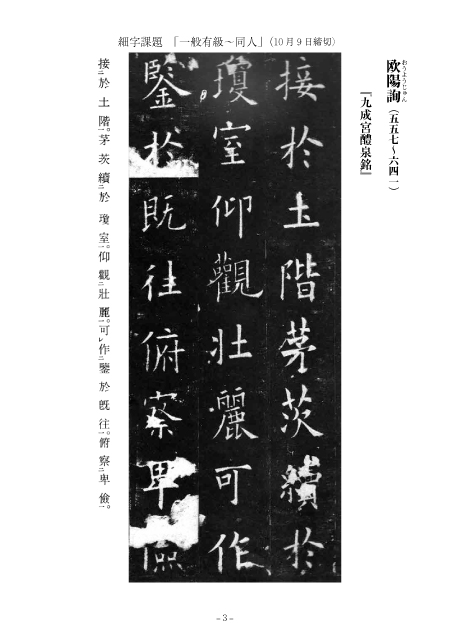 細字課題 「一般有級～同人」（10月9日締切）
欧陽詢（五五七～六四一）
おうようじゅん
『九成宮醴泉銘』
接於土階茅茨續於
瓊室仰觀壯麗可作
鑒於既往俯察卑儉
接二於 土 階一。茅 茨 續二於 瓊 室一。仰 觀二壯 麗一。可レ作二鑒 於 既 往一。俯 察二卑 儉一。
－3－